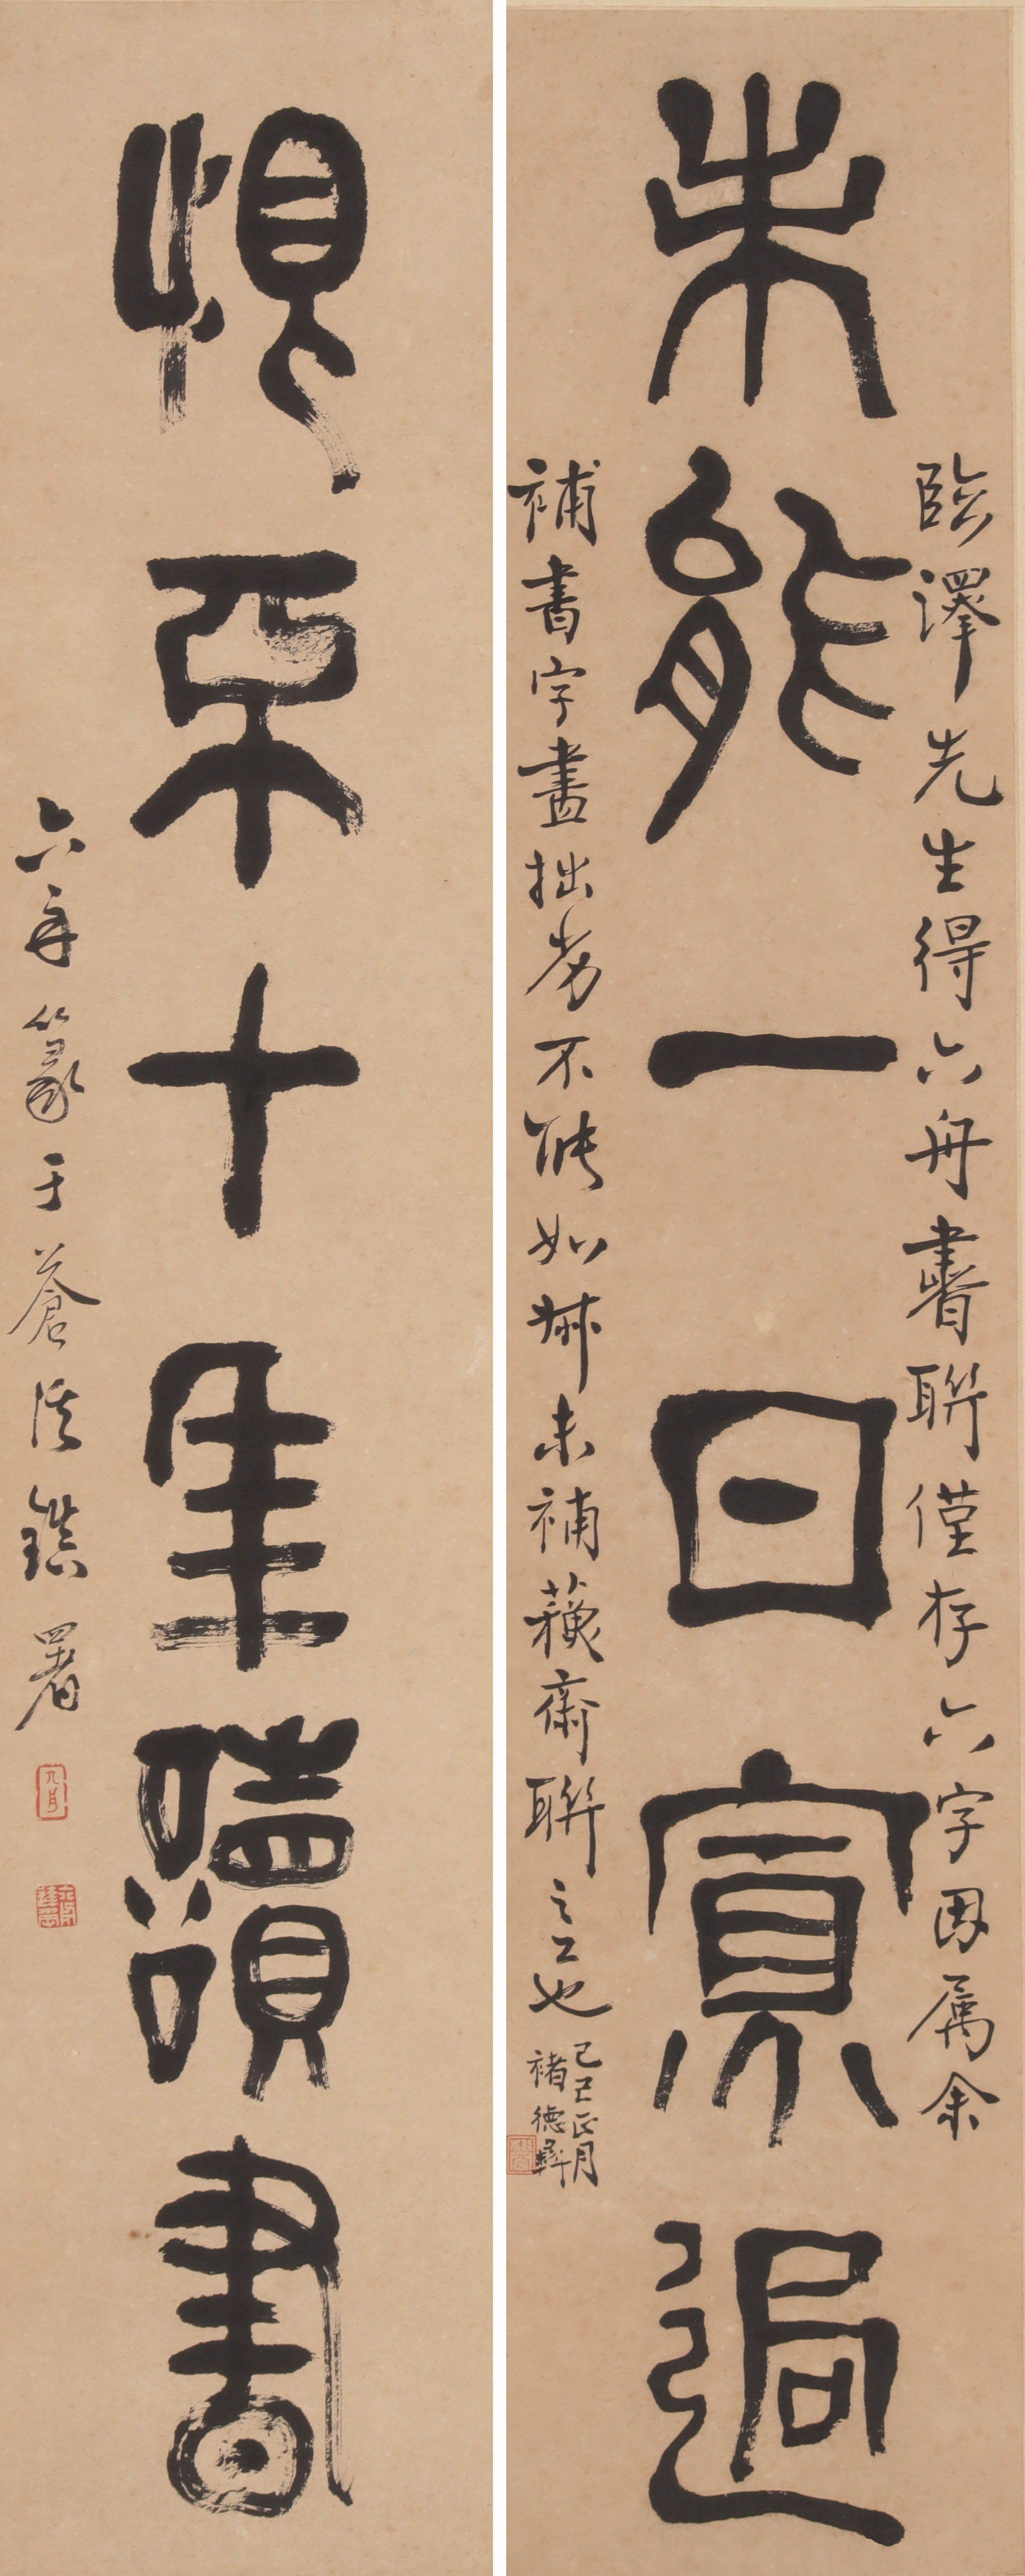 未能一日寡過
臨澤先生得六舟書聯僅存六字因属余
補書字畫拙劣不能如叔未補蘓齋聯之工也
己巳正月
褚德彝
恨不十年讀書
六舟篆于蒼鎮署